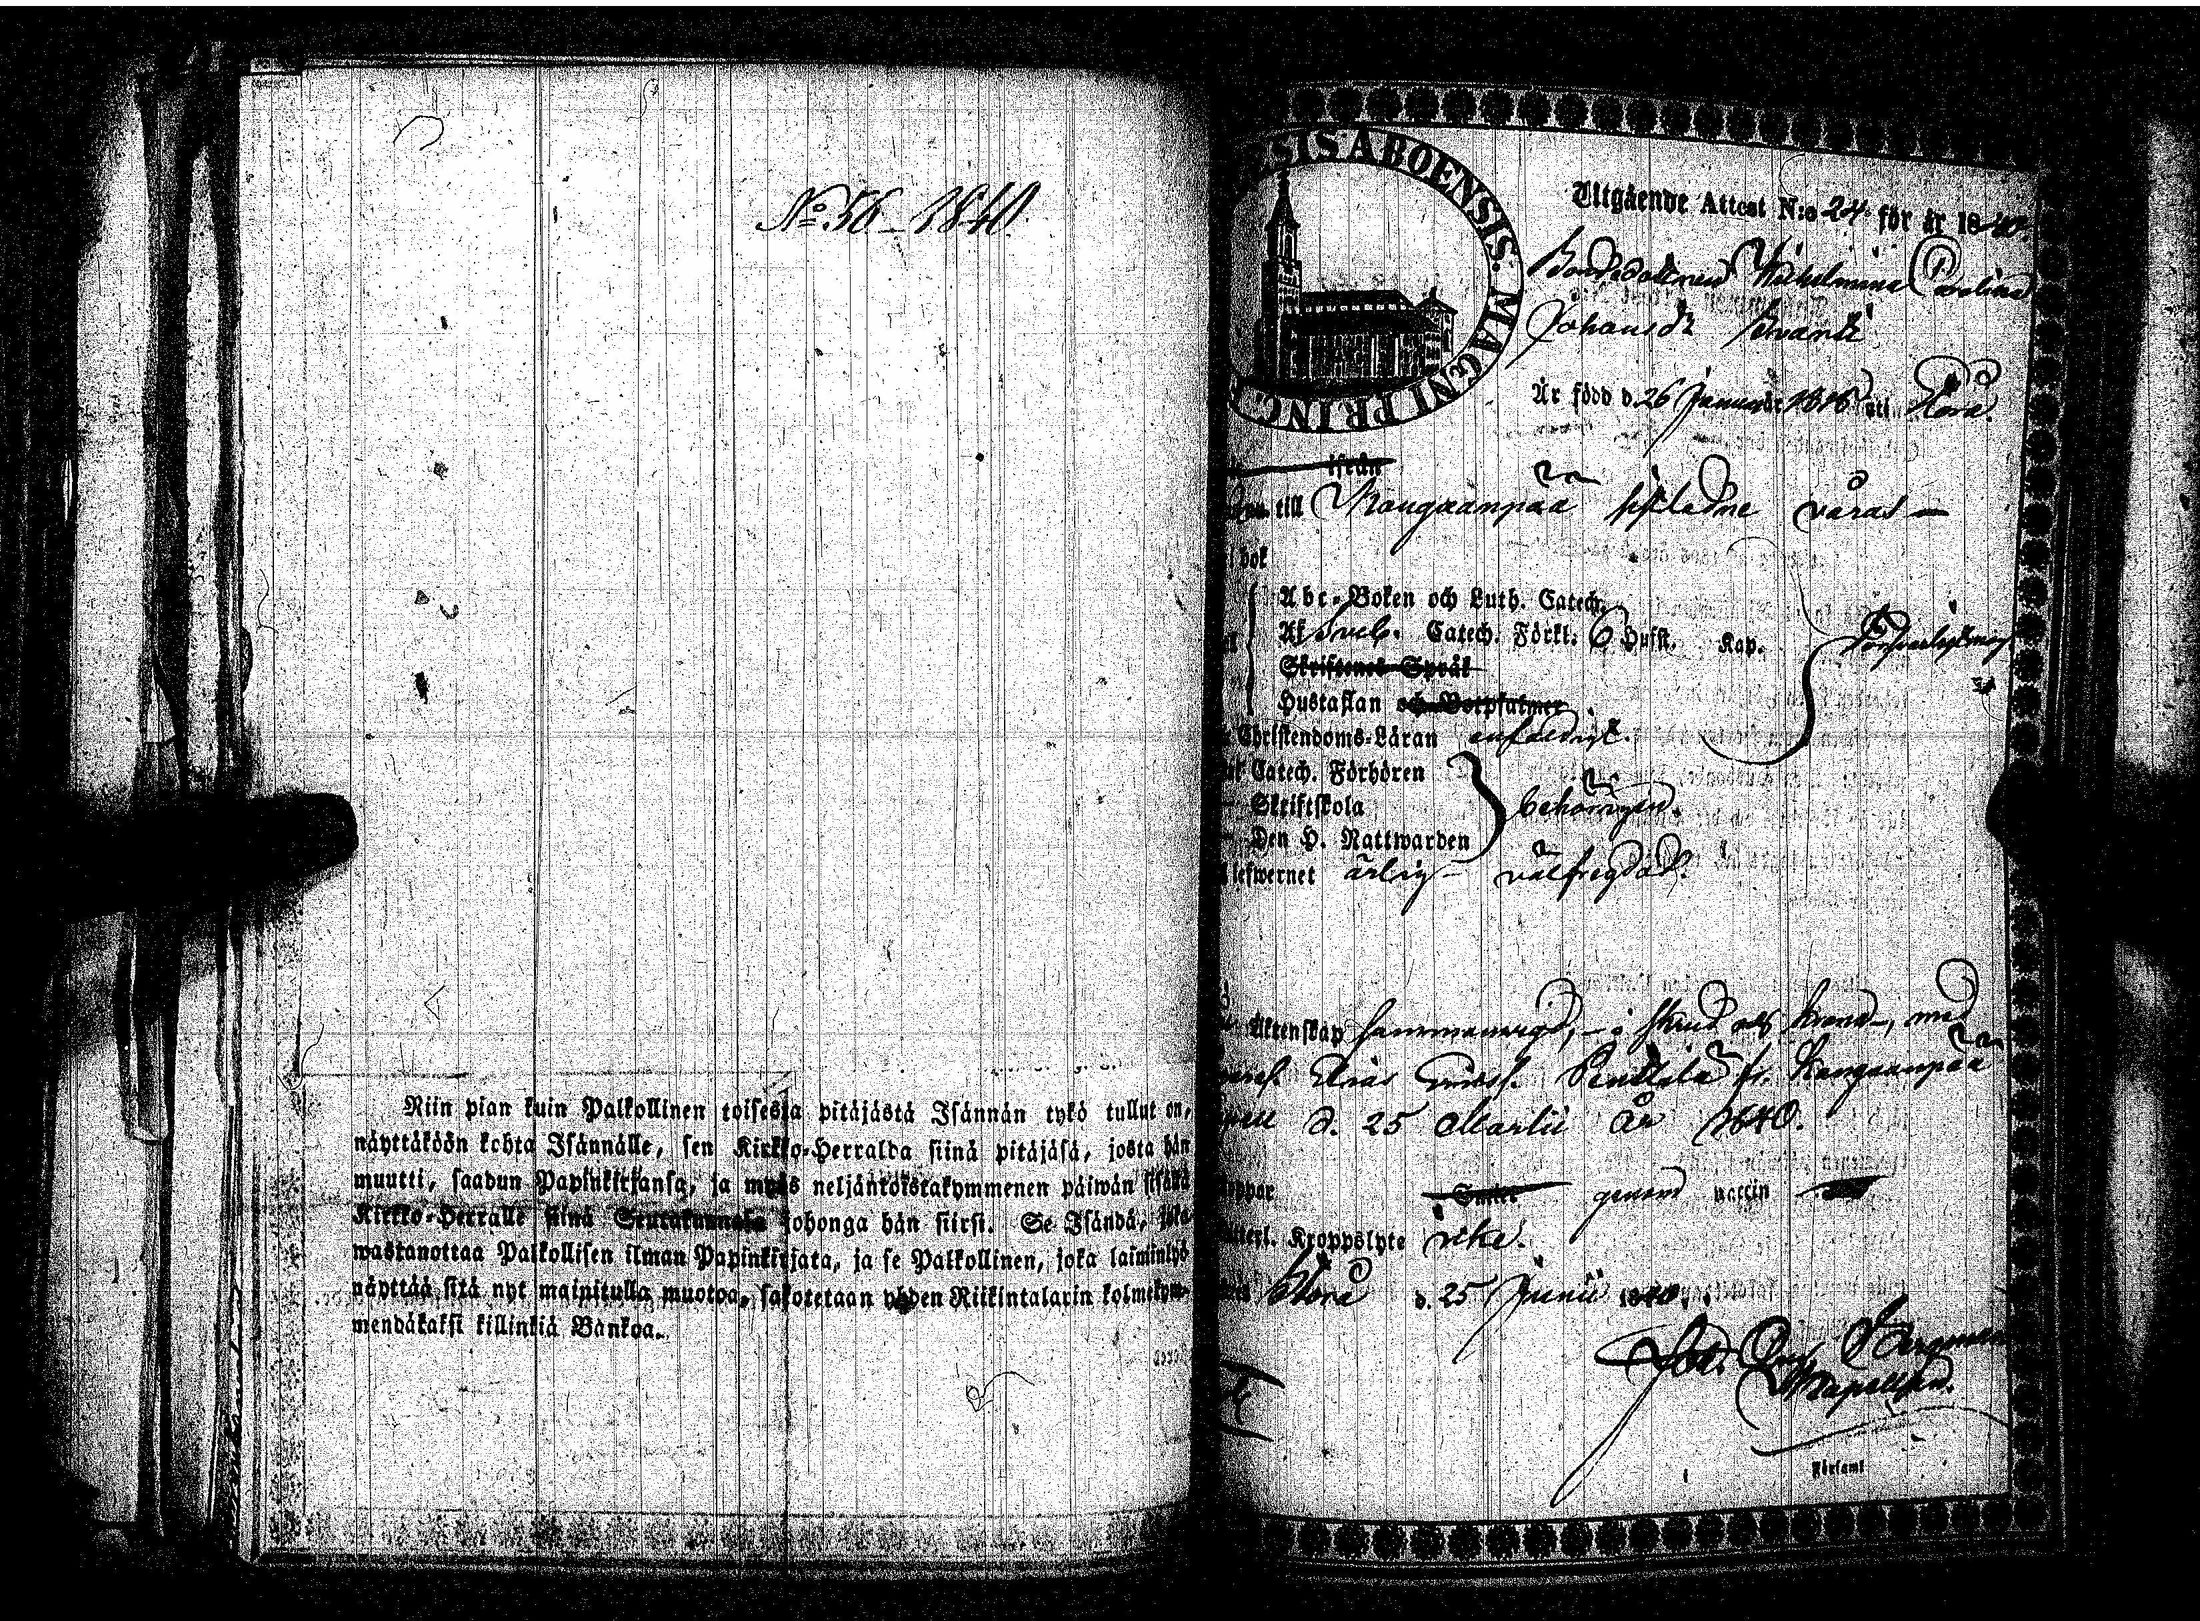 No. 56 – 1840.
Niin pian kuin Palkollinen toisesta pitäjästä Isännän tykö tullut on,
näyttäköön kohta Isännälle, sen Kirkko-Herralda siinä pitäjäsä, josta hän
muutti, saadun Papinkirjansa, ja myös neljäntöistakymmenen päiwän sisällä
Kirkko-Herralle siinä Seurakunnasa johonga hän siirsi. Se Isändä, joka
wastanottaa Palkollisen ilman Papinkirjata, ja se Palkollinen, joka laiminlyö
näyttää sitä nyt mainitulla muotoa, sakotetaan yhden Riikintalarin kolmekym-
mendäkaksi killinkiä Bankoa.
SIS ABOENSIS. MAGNI PRINC.
Utgående Attest N:o 24 för år 1840.
Bondedottren Wilhelmina Carolina
Johansdr
Är född d. 26 Januarii 1818 uti Storå
ifrån
till Kangaanpää
bok
Abc-Boken och Luth. Catech.
Af Sveb. Catech. Förkl. 6 Hufst. Kap.
Skriftenes Språk
Hustaflan och Botpsalmer
Christendoms-Läran enfaldigt.
Catech. Förhören
Skriftskola behörigen.
Den H. Nattwarden
lefwernet ärlig – välfregdad.
Äktenskap sammanvigd, – i med
fr. Kangaanpää
d. 25 Martii år 1840.
genom naccin
Kroppslyte icke.
Storå d. 25 Junii 1840.
Joh.
Kapellan.
Församl